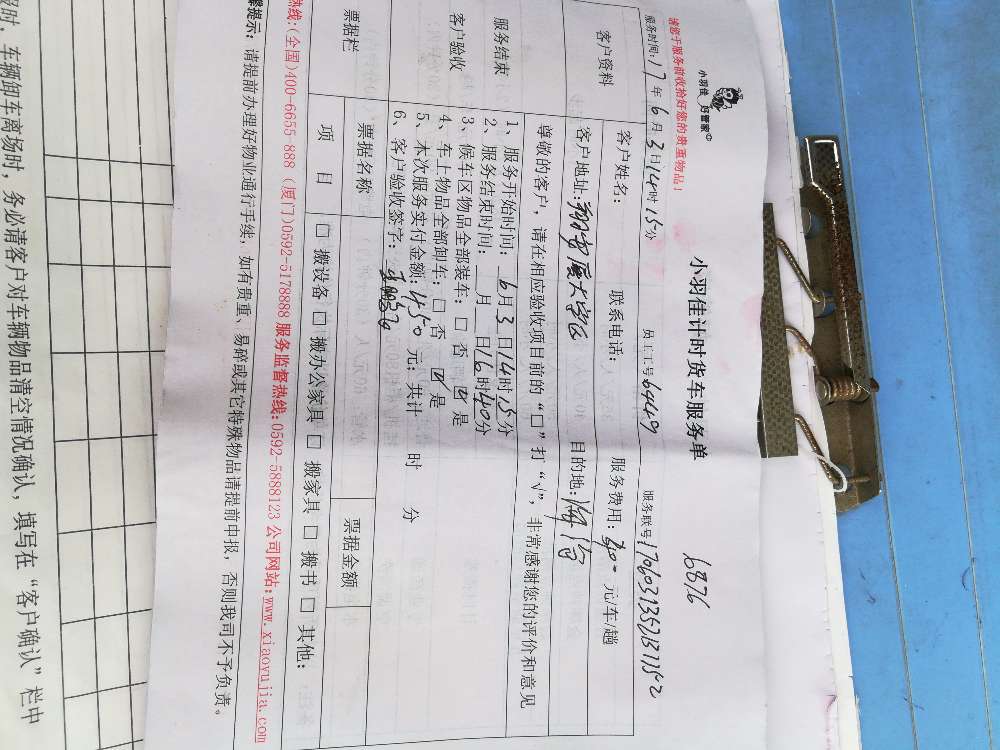 小羽佳 好管家
请您于服务前收拾好您的贵重物品!
小羽佳计时货车服务单
6876
服务时间:17年6月3日14时15分 员工工号6449 服务联号1706031357137152
客户资料
客户姓名: 联系电话: 服务费用:400元/车/趟
客户地址:翔安厦大学区 目的地:
尊敬的客户,请在相应验收项目前的“□”打“√”,非常感谢您的评价和意见
服务结束
客户验收
1、服务开始时间:6月3日14时15分
2、服务结束时间: 月 日16时40分
3、候车区物品全部装车:□ 否 ☑ 是
4、车上物品全部卸车:□ 否 ☑ 是
5、本次服务实付金额:450元;共计 时 分
6、客户验收签字:
票据栏
票据名称 票据金额
项 目 □ 搬设备 □ 搬办公家具 □ 搬家具 □ 搬书 □ 其他:
热线:(全国)400-6655 888 (厦门)0592-5178888 服务监督热线:0592-5888123 公司网站:www.xiaoyujia.com
馨提示:请提前办理好物业通行手续,如有贵重、易碎或其它特殊物品请提前申报,否则我司不予负责。
报时,车辆卸车离场时,务必请客户对车辆物品清空情况确认,填写在“客户确认”栏中